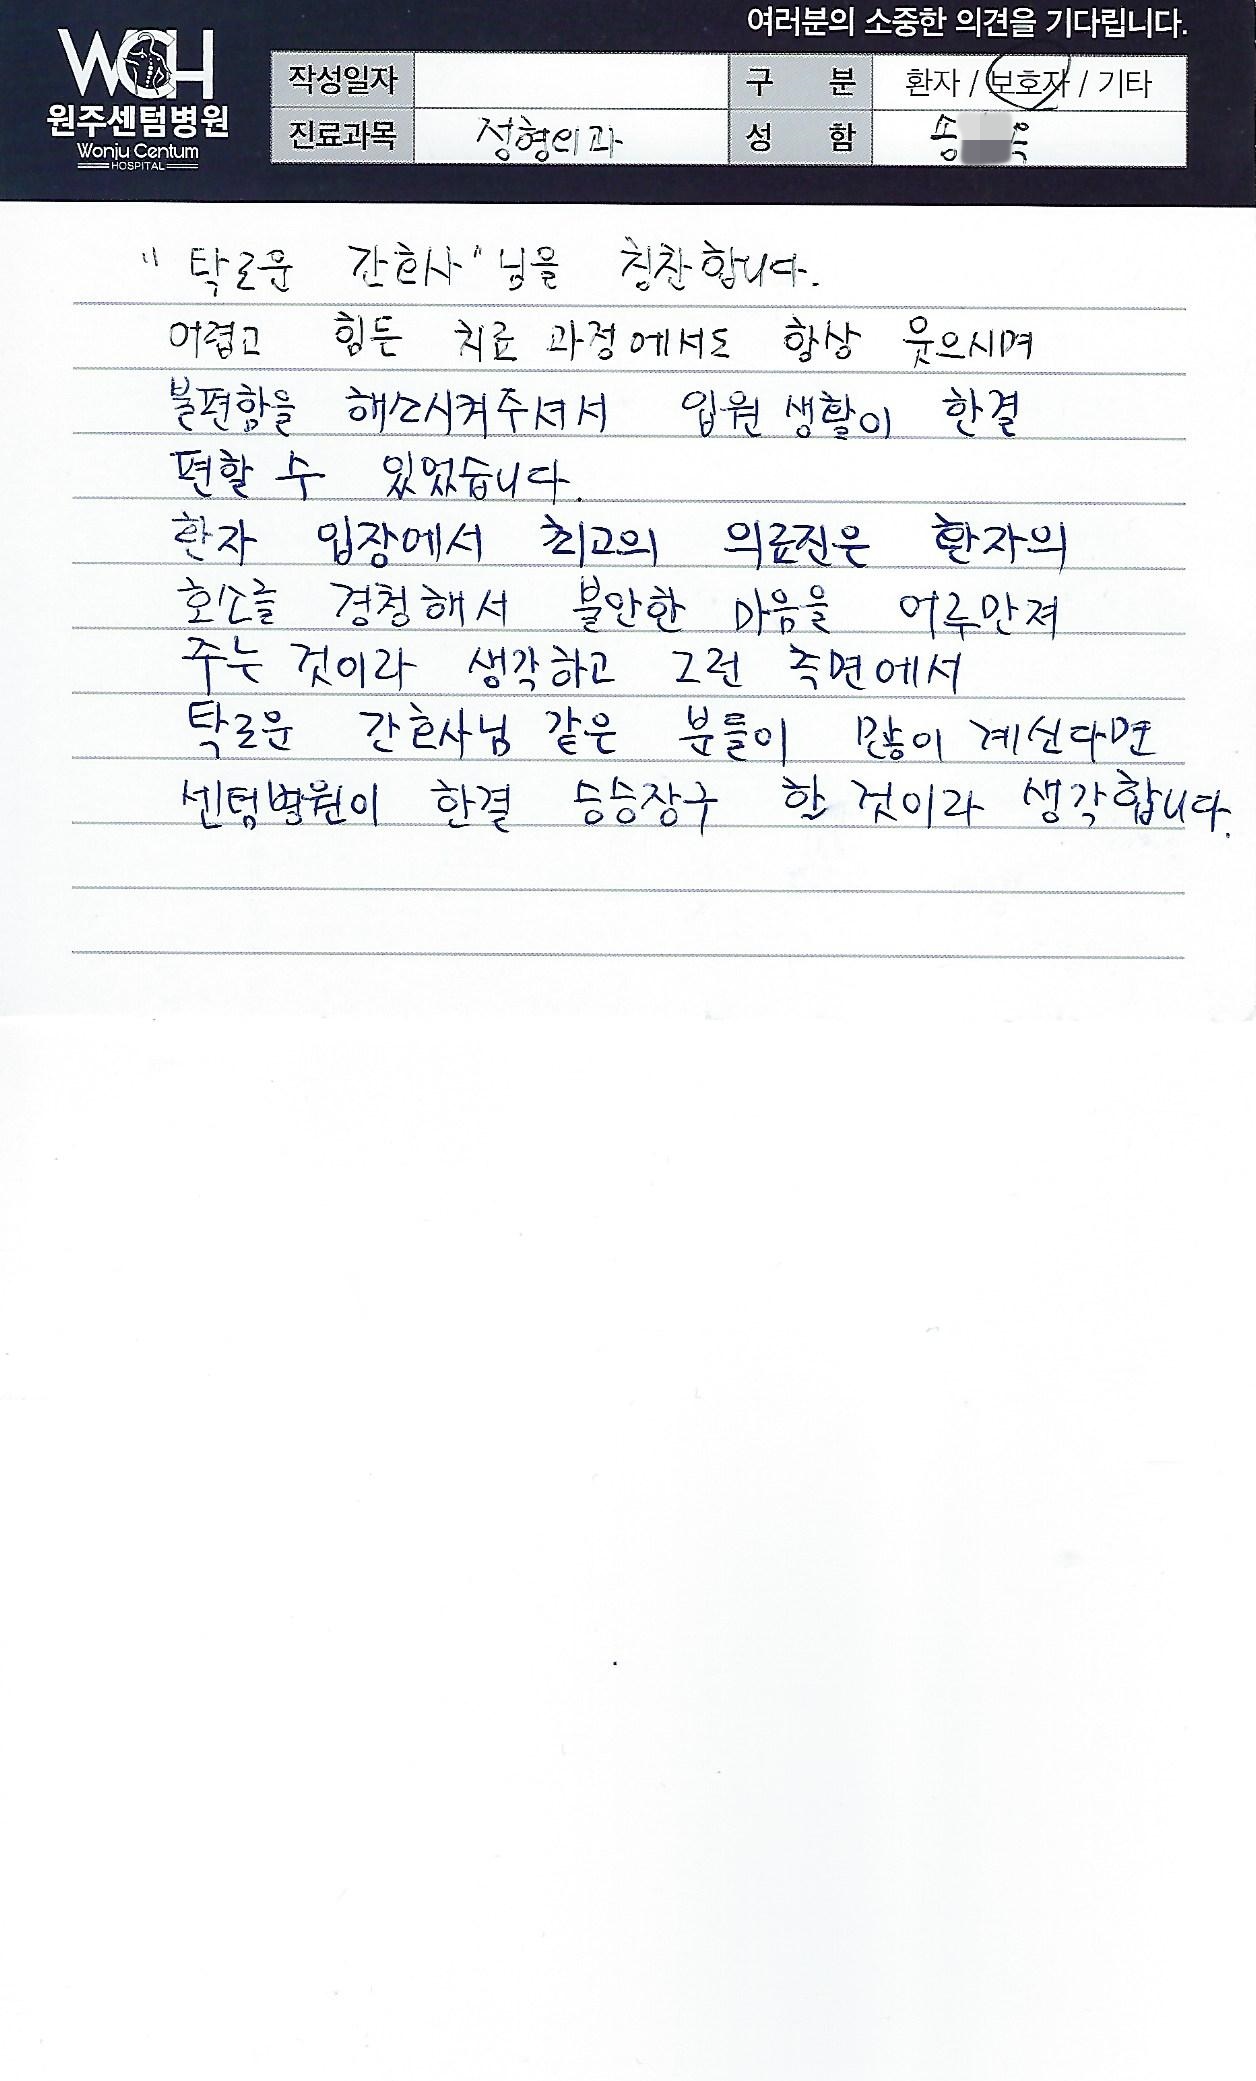 여러분의 소중한 의견을 기다립니다.
WCH
원주센텀병원
Wonju Centum
HOSPITAL
작성일자 구 분 환자 / 보호자 / 기타
진료과목 정형외과 성 함 송
"탁로운 간호사"님을 칭찬합니다.
어렵고 힘든 치료 과정에서도 항상 웃으시며
불편함을 해소시켜주셔서 입원 생활이 한결
편할 수 있었습니다.
환자 입장에서 최고의 의료진은 환자의
호소를 경청해서 불안한 마음을 어루만져
주는 것이라 생각하고 그런 측면에서
탁로운 간호사님 같은 분들이 많이 계신다면
센텀병원이 한결 승승장구 할 것이라 생각합니다.